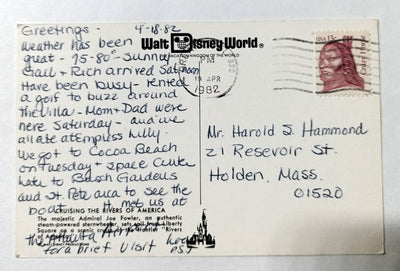 Greetings - 4-18-82
Weather has been
great - 75-80° - Sunny
Gail + Rich arrived Sat noon
Have been busy - rented
a golf to buzz around
the Villa - Mom + Dad were
here Saturday - and we
all ate at Empress Lilly.
We got to Cocoa Beach
on Tuesday + Space Center
to Busch Gardens
and St. Pete area to see the
boat. met us at
Atlanta
for a brief visit
Walt Disney World®
VACATION KINGDOM OF THE WORLD
PM
19 APR
1982
USA 13c
Crazy Horse
Mr. Harold S. Hammond
21 Resevoir St.
Holden, Mass.
01520
CRUISING THE RIVERS OF AMERICA
The majestic Admiral Joe Fowler, an authentic
steam-powered sternwheeler, sets sail from Liberty
Square on a scenic cruise of the frontier "Rivers